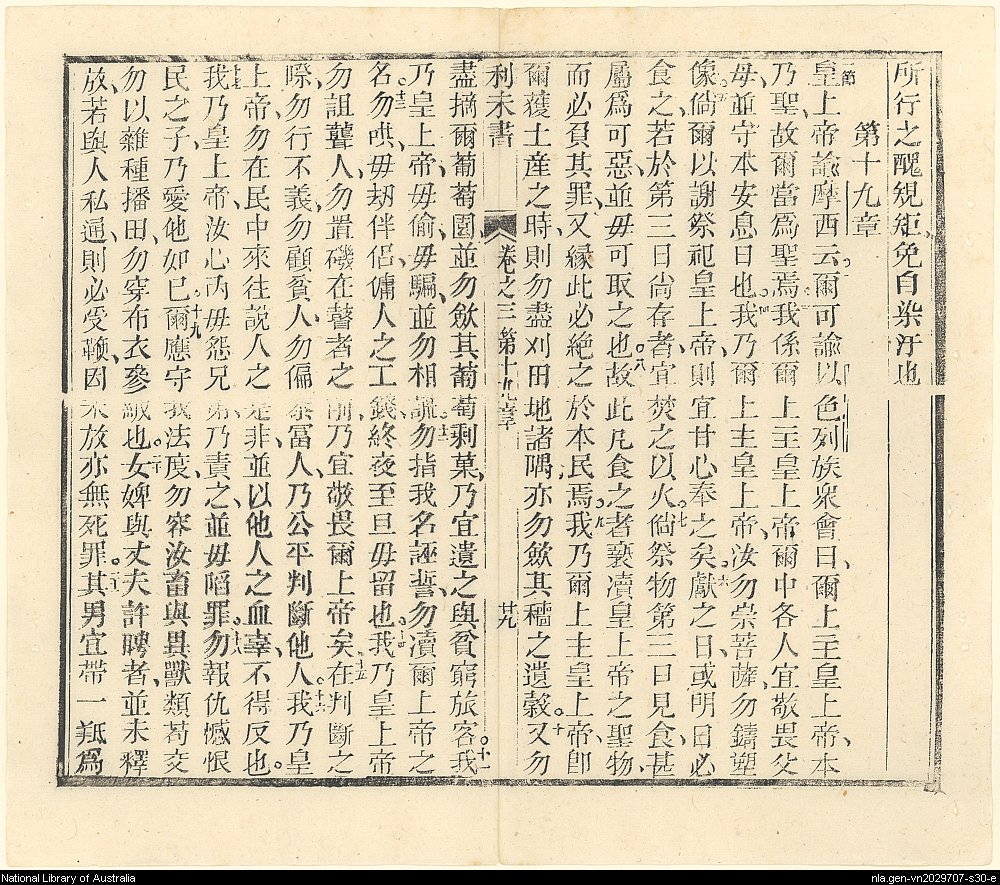 所行之醜規矩免自染汙也
第十九章
一節皇上帝諭摩西云二爾可諭以色列族衆會曰爾上主皇上帝本
乃聖故爾當爲聖焉三我係爾上主皇上帝爾中各人宜敬畏父
毋並守本安息日也四我乃爾上主皇上帝汝勿崇菩薩勿鑄塑
像五倘爾以謝祭祀皇上帝則宜甘心奉之矣六獻之日或明日必
食之若於第三日尚存者宜焚之以火七倘祭物第三日見食甚
屬爲可惡並毋可取之也八故此凡食之者褻瀆皇上帝之聖物
而必負其罪又緣此必絕之於本民焉九我乃爾上主皇上帝卽
爾獲土産之時則勿盡刈田地諸隅亦勿歛其穡之遺穀十又勿
利未書 卷之三 第十九章 廿九
盡摘爾葡萄園並勿歛其葡萄剩菓乃宜遺之與貧窮旅客十一我
乃皇上帝毋偷毋騙並勿相謊十二勿指我名誣誓勿瀆爾上帝之
名十三勿哄毋刼伴侶傭人之工錢終夜至旦毋留也十四我乃皇上帝
勿詛聾人勿置磯在瞽者之前乃宜敬畏爾上帝矣十五在判斷之
際勿行不義勿顧貧人勿偏泰富人乃公平判斷他人十六我乃皇
上帝勿在民中來往說人之是非並以他人之血辜不得反也
十七我乃皇上帝汝心內毋怨兄弟乃責之並毋陷罪十八勿報仇憾恨
民之子乃愛他如已十九爾應守我法度勿容汝畜與異獸類苟交
勿以雜種播田勿穿布衣參絨也二十女婢與丈夫許聘者並未釋
放若與人私通則必受鞭因未放亦無死罪二一其男宜帶一羝爲